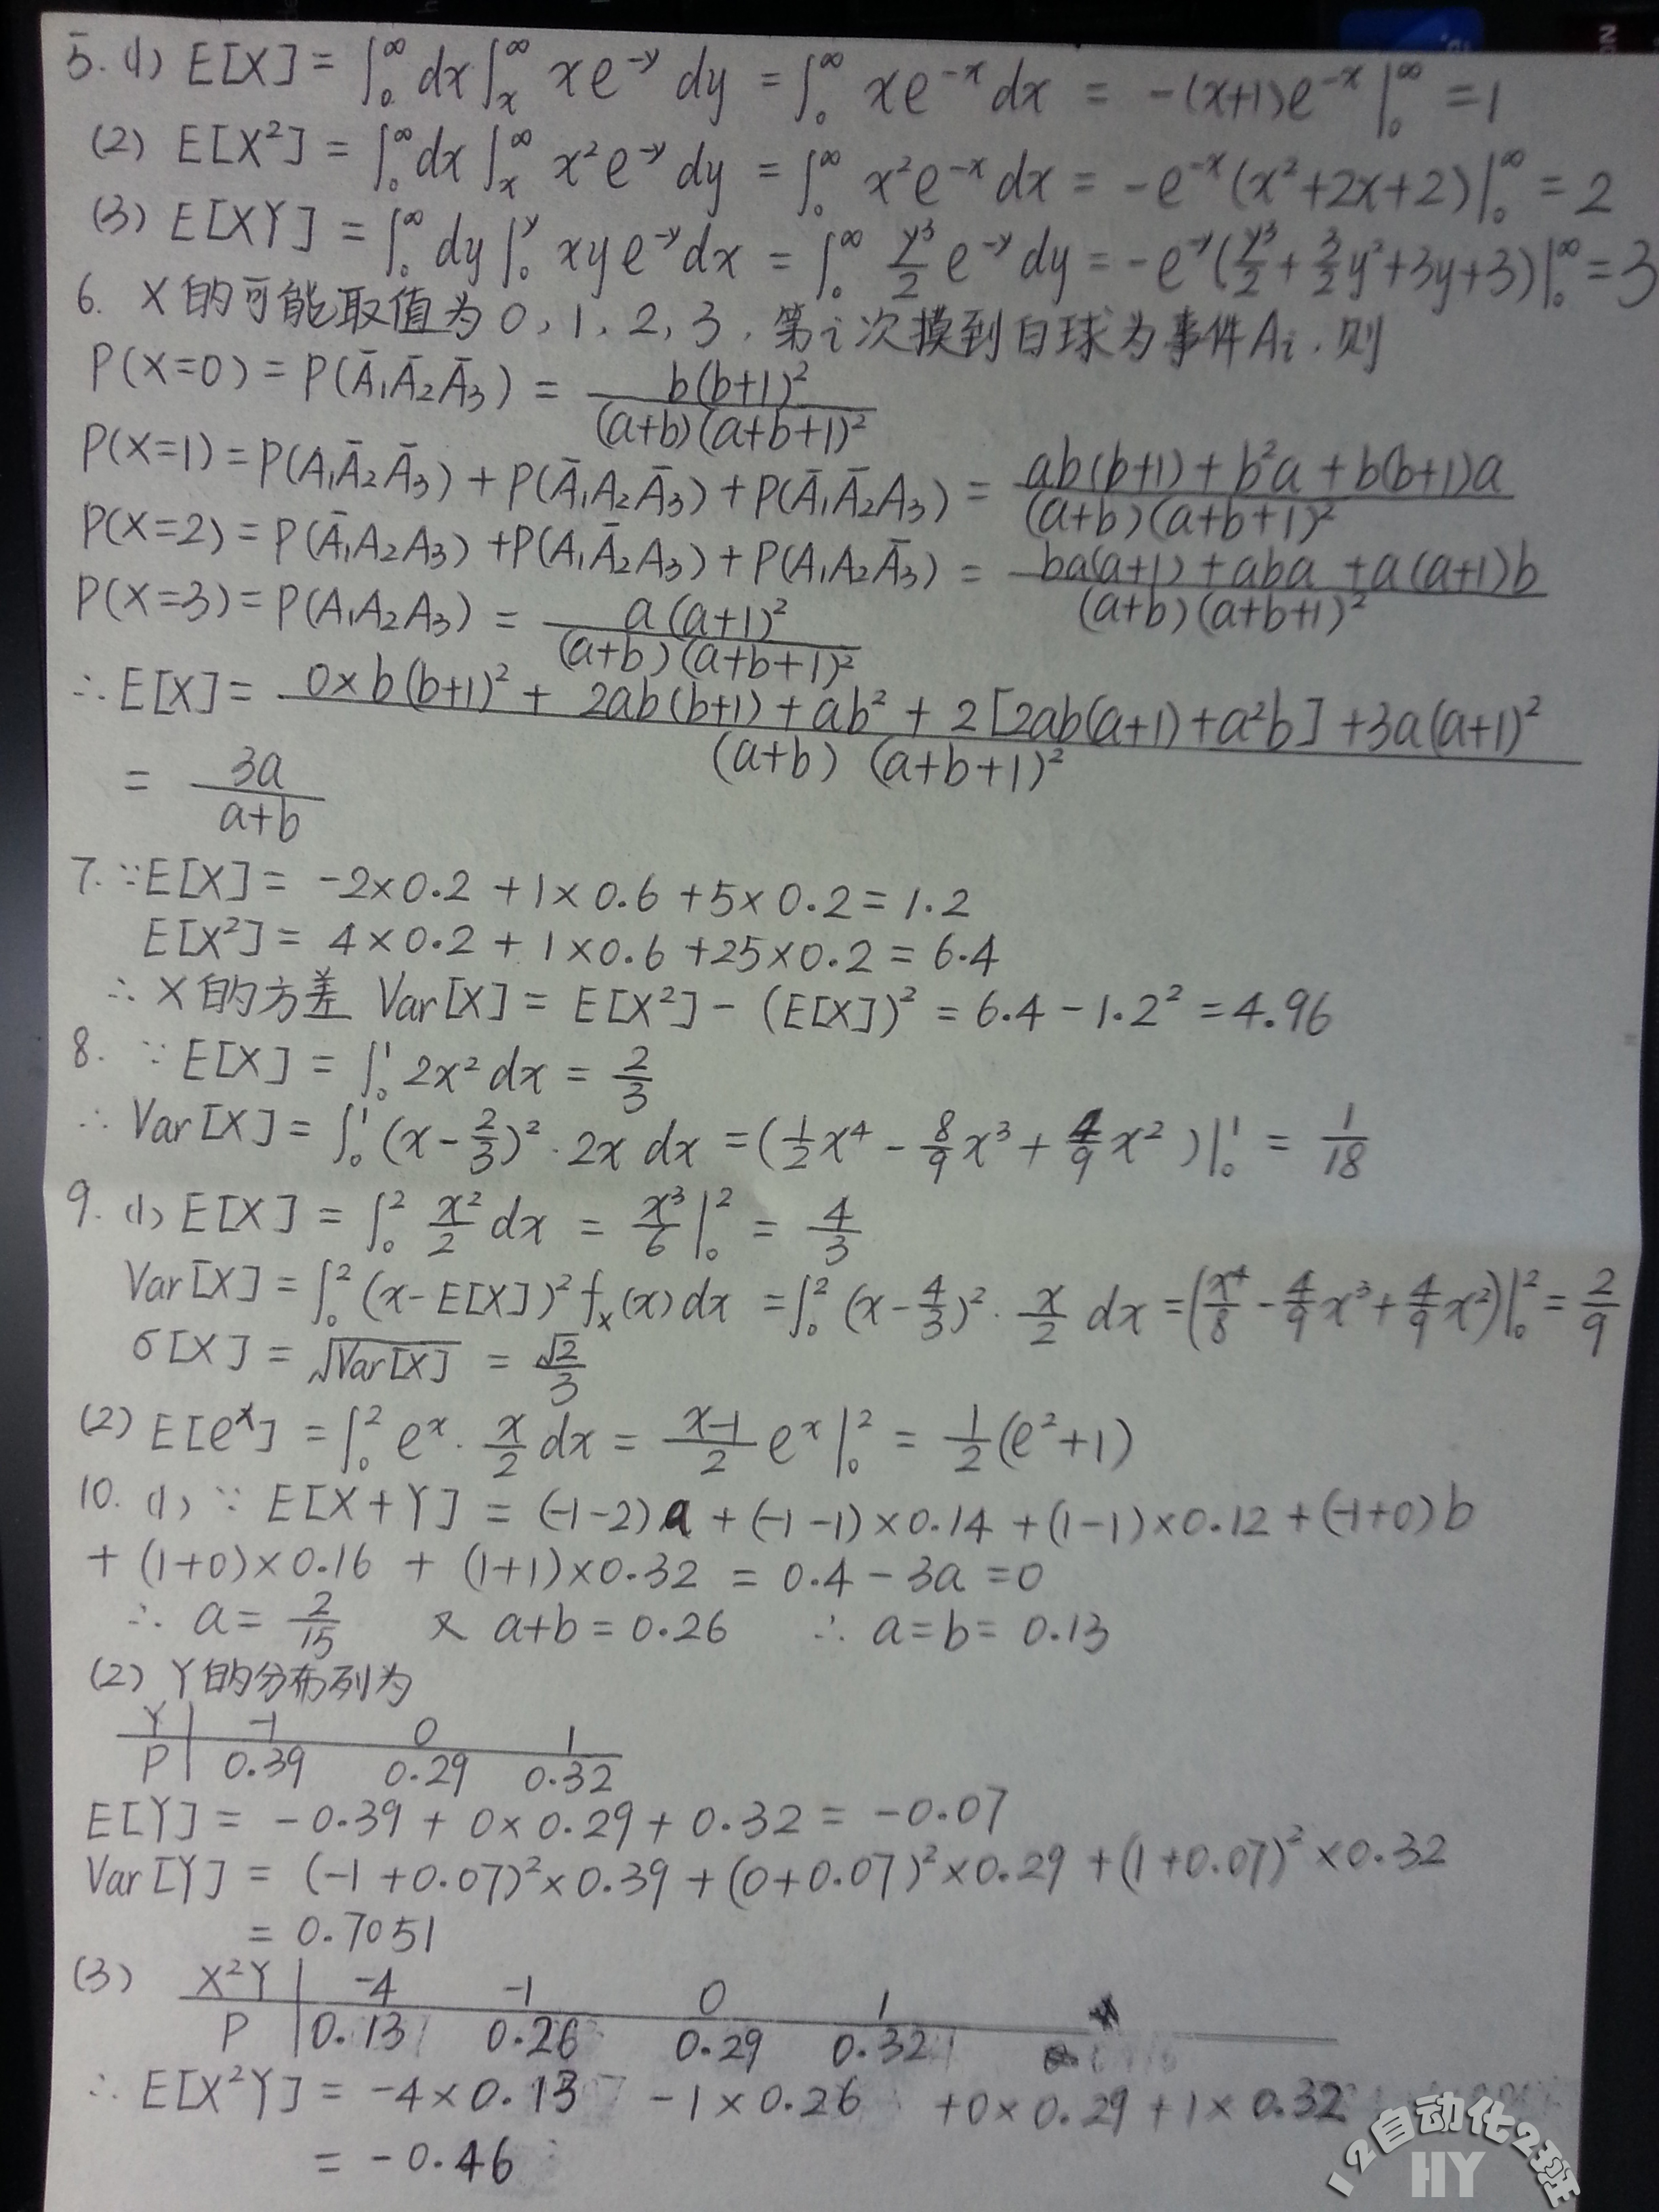 5. (1) E[X] = ∫₀^∞ dx ∫ₓ^∞ xe⁻ʸ dy = ∫₀^∞ xe⁻ˣ dx = -(x+1)e⁻ˣ|₀^∞ = 1
(2) E[X²] = ∫₀^∞ dx ∫ₓ^∞ x²e⁻ʸ dy = ∫₀^∞ x²e⁻ˣ dx = -e⁻ˣ(x²+2x+2)|₀^∞ = 2
(3) E[XY] = ∫₀^∞ dy ∫₀^y xye⁻ʸ dx = ∫₀^∞ y³/2 e⁻ʸ dy = -e⁻ʸ(y³/2 + 3/2 y² + 3y + 3)|₀^∞ = 3
6. X的可能取值为0, 1, 2, 3, 第i次摸到白球为事件Aᵢ, 则
P(X=0) = P(Ā₁Ā₂Ā₃) = b(b+1)² / (a+b)(a+b+1)²
P(X=1) = P(A₁Ā₂Ā₃) + P(Ā₁A₂Ā₃) + P(Ā₁Ā₂A₃) = ab(b+1) + b²a + b(b+1)a / (a+b)(a+b+1)²
P(X=2) = P(Ā₁A₂A₃) + P(A₁Ā₂A₃) + P(A₁A₂Ā₃) = ba(a+1) + aba + a(a+1)b / (a+b)(a+b+1)²
P(X=3) = P(A₁A₂A₃) = a(a+1)² / (a+b)(a+b+1)²
∴ E[X] = 0×b(b+1)² + 2ab(b+1) + ab² + 2[2ab(a+1) + a²b] + 3a(a+1)² / (a+b)(a+b+1)²
= 3a / a+b
7. ∵ E[X] = -2×0.2 + 1×0.6 + 5×0.2 = 1.2
E[X²] = 4×0.2 + 1×0.6 + 25×0.2 = 6.4
∴ X的方差 Var[X] = E[X²] - (E[X])² = 6.4 - 1.2² = 4.96
8. ∵ E[X] = ∫₀¹ 2x² dx = 2/3
∴ Var[X] = ∫₀¹ (x - 2/3)² · 2x dx = (1/2 x⁴ - 8/9 x³ + 4/9 x²)|₀¹ = 1/18
9. (1) E[X] = ∫₀² x²/2 dx = x³/6|₀² = 4/3
Var[X] = ∫₀² (x - E[X])² fₓ(x) dx = ∫₀² (x - 4/3)² · x/2 dx = (x⁴/8 - 4/9 x³ + 4/9 x²)|₀² = 2/9
σ[X] = √Var[X] = √2/3
(2) E[eˣ] = ∫₀² eˣ · x/2 dx = x-1/2 eˣ|₀² = 1/2 (e²+1)
10. (1) ∵ E[X+Y] = (-1-2)a + (-1-1)×0.14 + (1-1)×0.12 + (-1+0)b
+ (1+0)×0.16 + (1+1)×0.32 = 0.4 - 3a = 0
∴ a = 2/15 又 a+b = 0.26 ∴ a = b = 0.13
(2) Y的分布列为
Y | -1 0 1
P | 0.39 0.29 0.32
E[Y] = -0.39 + 0×0.29 + 0.32 = -0.07
Var[Y] = (-1+0.07)²×0.39 + (0+0.07)²×0.29 + (1+0.07)²×0.32
= 0.7051
(3) X²Y | -4 -1 0 1
P | 0.13 0.26 0.29 0.32
∴ E[X²Y] = -4×0.13 -1×0.26 +0×0.29 + 1×0.32
= -0.46
12自动化2班
HY